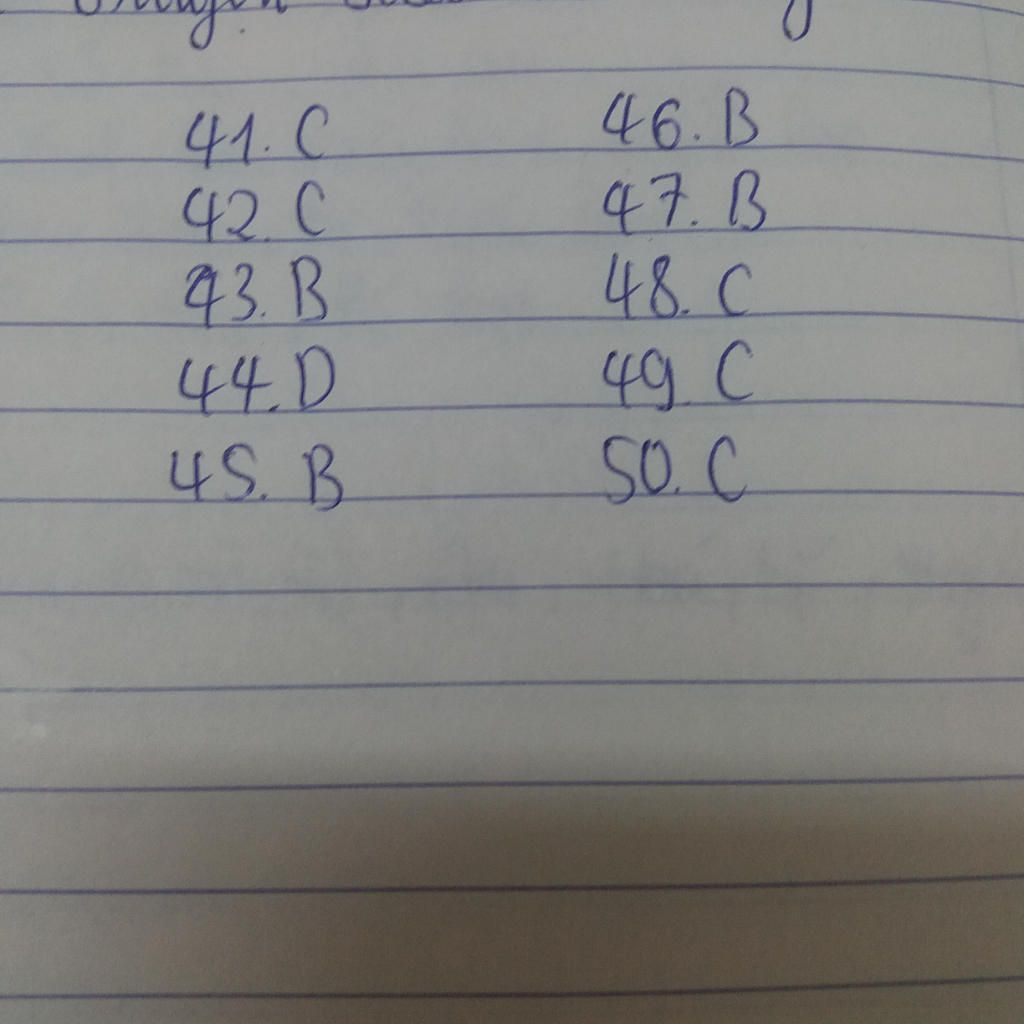 41. C 46. B
42. C 47. B
43. B 48. C
44. D 49. C
45. B 50. C